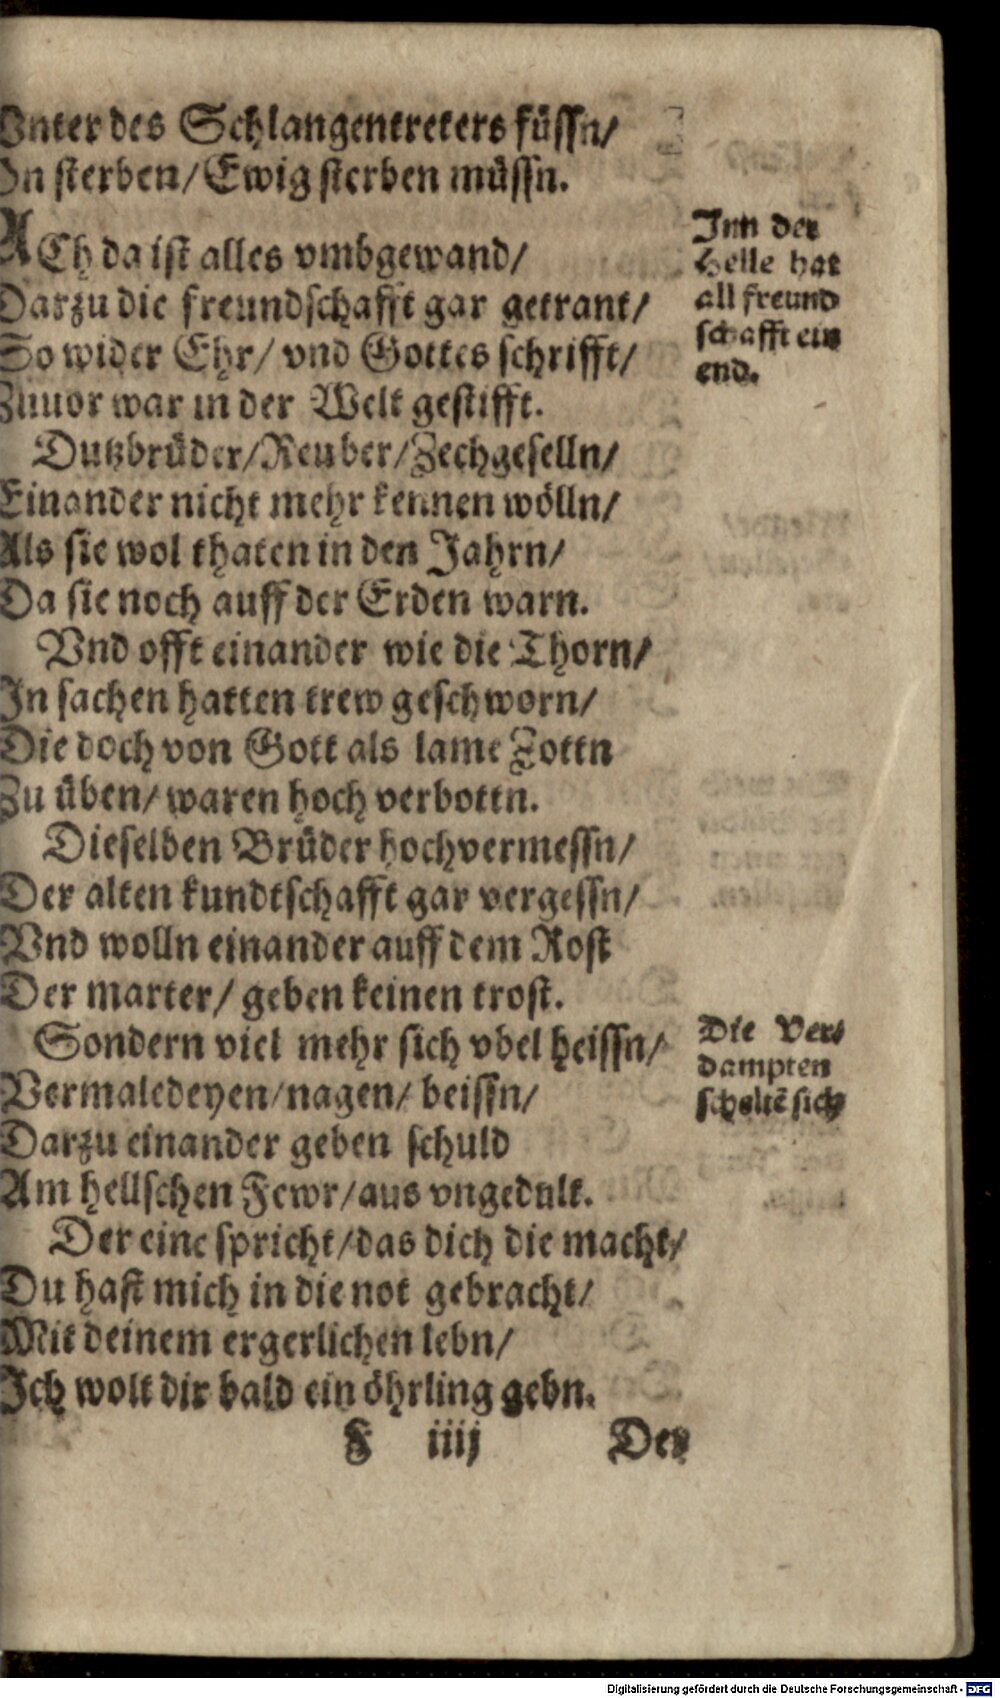 Vnter des Schlangentreters füssn/
In sterben/ Ewig sterben müssn.
ACh da ist alles vmbgewand/
Darzu die freundschafft gar getrant/
So wider Ehr/ vnd Gottes schrifft/
Zuuor war in der Welt gestifft.
Dutzbrüder/ Reuber/ Zechgeselln/
Einander nicht mehr kennen wölln/
Als sie wol thaten in den Jahrn/
Da sie noch auff der Erden warn.
Vnd offt einander wie die Thorn/
In sachen hatten trew geschworn/
Die doch von Gott als lame Zottn
Zu üben/ waren hoch verbottn.
Dieselben Brüder hochvermessn/
Der alten kundtschafft gar vergessn/
Vnd wolln einander auff dem Rost
Der marter/ geben keinen trost.
Sondern viel mehr sich vbel heissn/
Vermaledeyen/ nagen/ beissn/
Darzu einander geben schuld
Am hellschen Fewr/ aus vngedult.
Der eine spricht/ das dich die macht/
Du hast mich in die not gebracht/
Mit deinem ergerlichen lebn/
Ich wolt dir bald ein öhrling gebn.
F iiij Der
Inn der
Helle hat
all freund
schafft ein
end.
Die Ver-
dampten
scheltē sich
Digitalisierung gefördert durch die Deutsche Forschungsgemeinschaft - DFG